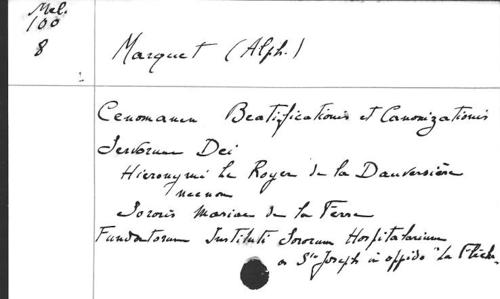 Mel.
100
8
Marquet (Alph.)
Cenomanen Beatificationis et Canonizationis
Servorum Dei
Hieronymi Le Royer de la Dauversière
necnon
Sororis Mariae de la Ferre
Fundatorum Instituti Sororum Hospitalarium
a Sto Joseph in oppido "La Flèche